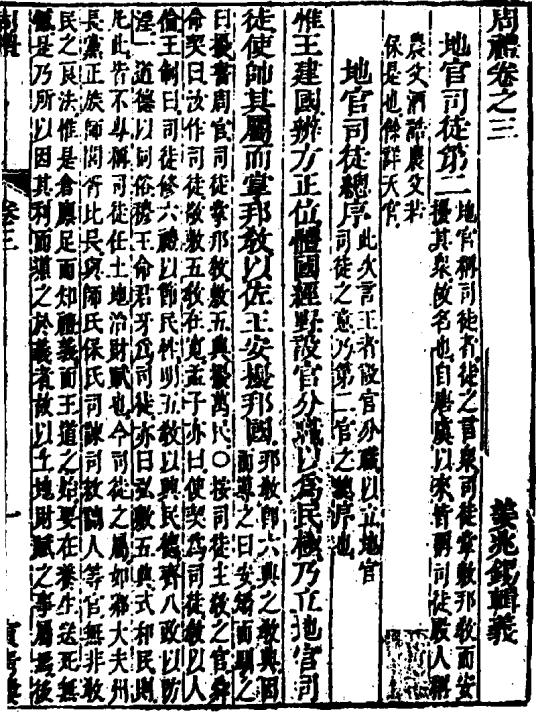 周禮卷之三
姜兆錫輯義
地官司徒第二
地官稱司徒者徒之言衆司徒掌敷邦教而安
擾其衆故名也自唐虞以來皆稱司徒殷人稱
農父酒誥農父若
保是也餘詳天官
地官司徒總序
此次言王者設官分職以立地官
司徒之意乃第二官之總序也
惟王建國辨方正位體國經野設官分職以爲民極乃立地官司
徒使帥其屬而掌邦教以佐王安擾邦國
邦教即六典之教典因
而導之曰安馴而
曰擾書周官司徒掌邦教敷五典擾萬民〇按司徒主教之官舜
命契曰汝作司徒敬敷五教在寬孟子亦曰使契爲司徒教以人
倫王制曰司徒修六禮以節民性明七教以興民德齊八政以防
淫一道德以同俗穆王命君牙爲司徒亦曰弘敷五典式和民則
凡此皆不專稱司徒任土地治財賦也今司徒之屬如鄉大夫州
長黨正族師閭胥比長與師氏保氏司諫司救調人等官無非教
民之良法惟是倉廩足而知禮義而王道之始要在養生送死無
憾是乃所以因其利而導之於義者故以土地財賦之事屬焉後
卷三
一